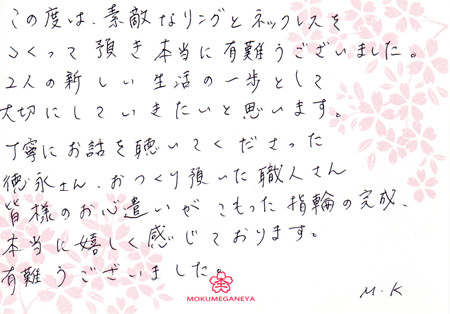 この度は、素敵なリングとネックレスを
つくって預き本当に有難うございました。
2人の新しい生活の一歩として
大切にしていきたいと思います。
丁寧にお話を聴いてくださった
徳永さん、おつくり預いた職人さん
皆様のお心遣いがこもった指輪の完成、
本当に嬉しく感じております。
有難うございました。
MOKUMEGANEYA
M.K